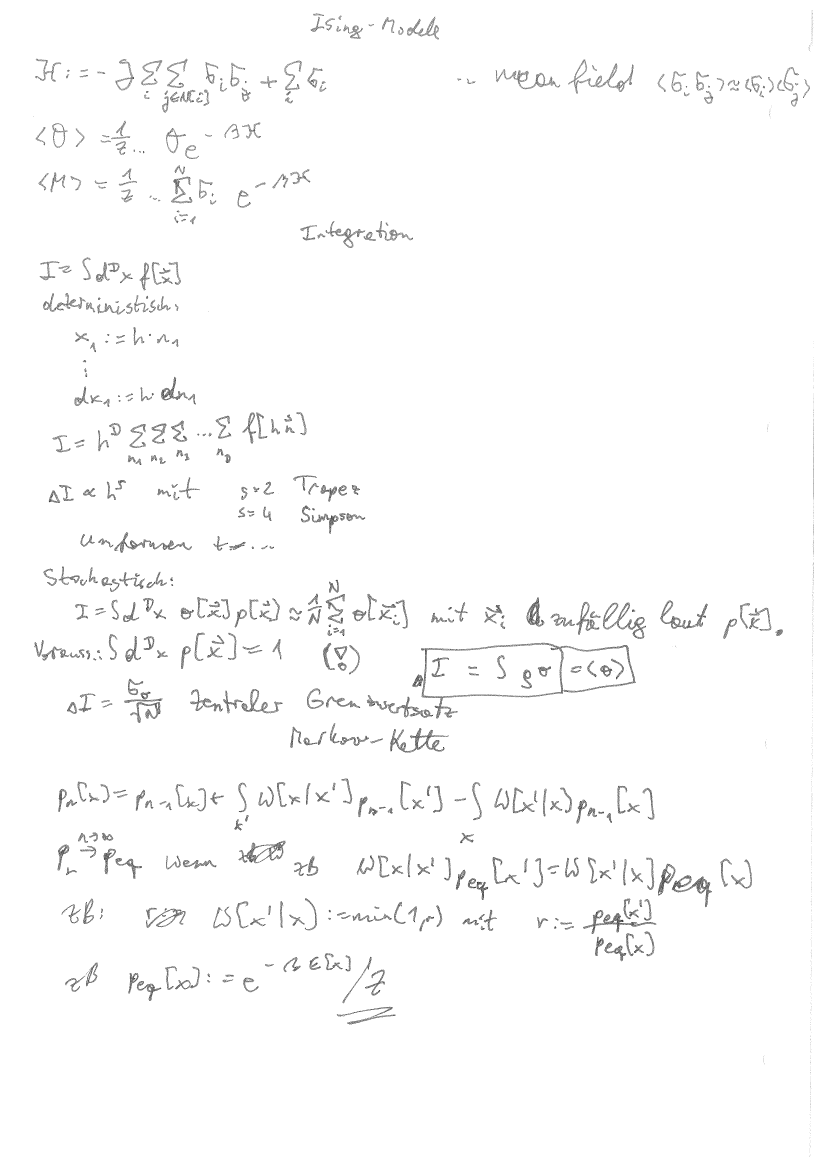 Ising-Modele
H := -J Σ_i Σ_{j∈N[i]} σ_i σ_j + Σ_i σ_i ... mean field <σ_i σ_j> ≈ <σ_i><σ_j>
<O> = 1/Z ... O e^{-βH}
<M> = 1/Z ... Σ_{i=1}^N σ_i e^{-βH}
Integration
I = ∫d^D x f[x⃗]
deterministisch:
x_1 := h·n_1
⋮
dx_1 := h dn_1
I = h^D Σ_{n_1} Σ_{n_2} Σ_{n_3} ... Σ_{n_D} f[h n⃗]
ΔI ∝ h^s mit s=2 Trapez
s=4 Simpson
umformen ...
Stochastisch:
I = ∫d^D x σ[x⃗] p[x⃗] ≈ 1/N Σ_{i=1}^N σ[x⃗_i] mit x⃗_i zufällig laut p[x⃗].
Vorauss.: ∫d^D x p[x⃗] = 1 (!) I = ∫ρσ = <σ>
ΔI = σ_σ/√N Zentraler Grenzwertsatz
Markov-Kette
p_n[x] = p_{n-1}[x] + ∫_{x'} W[x|x'] p_{n-1}[x'] - ∫_x W[x'|x) p_{n-1}[x]
p_n →^{n→∞} p_eq wenn zb W[x|x'] p_eq[x'] = W[x'|x] p_eq[x]
zB: W[x'|x) := min(1,r) mit r := p_eq[x']/p_eq[x]
zB p_eq[x] := e^{-βE[x]}/Z